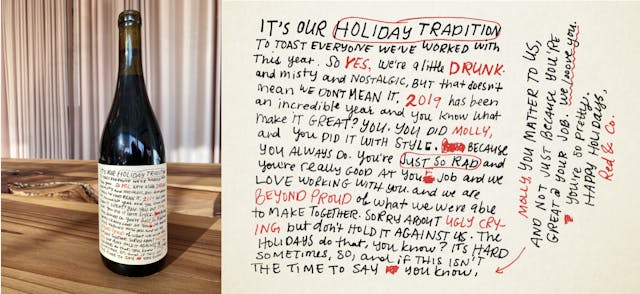 IT'S OUR HOLIDAY TRADITION
IT'S OUR HOLIDAY TRADITION
TO TOAST EVERYONE WE'VE WORKED WITH
This year. SO YES, we're a little DRUNK.
and misty and NOSTALGIC, BUT that doesn't
mean WE DON'T MEAN IT, 2019 has been
an incredible year and you know what
make IT GREAT? YOU. YOU DID MOLLY,
and you DID IT WITH STYLE. BECAUSE
YOU ALWAYS DO. You're JUST SO RAD and
you're really GOOD AT YOU JOB and we
LOVE WORKING WITH YOU. and we are
BEYOND PROUD of what we were able
to MAKE TOGETHER. SORRY ABOUT UGLY CRY-
ING but don't HOLD IT AGAINST US. The
HOLIDAYS do that, you know? IT'S HARD
SOMETIMES, SO, and if THIS ISN'T
THE TIME TO SAY you know,
MOLLY, YOU MATTER TO US,
AND NOT JUST BECAUSE YOU'RE
GREAT @ YOUR JOB. We looove you.
you're so pretty.
HAPPY HOLIDAYS,
Red & Co.